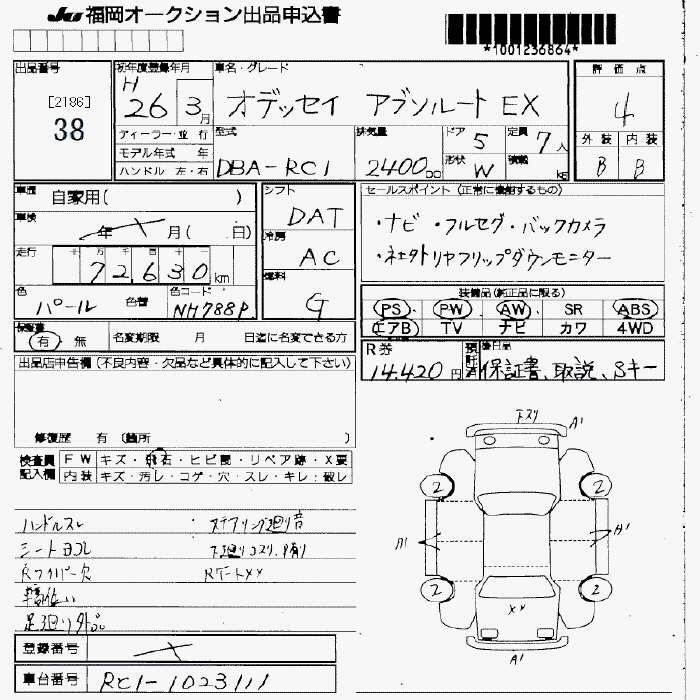 JU 福岡オークション出品申込書
*1001236864*
出品番号
[2186]
38
初年度登録年月
H 26 3月
車名・グレード
オデッセイ アブソルート EX
評価点
4
外装 内装
B B
ディーラー・並行
モデル年式 年
ハンドル 左・右
型式
DBA-RC1
排気量
2400cc
ドア 5
形状 W
定員 7人
積載 kg
車歴 自家用( )
車検 年 月( 日)
走行 十 万 千 百 十
72,630km
色 パール 色替
色コード NH788P
シフト DAT
冷房 AC
燃料 G
セールスポイント(正常に機能するもの)
・ナビ ・フルセグ・バックカメラ
・フリップダウンモニター
装備品(純正品に限る)
PS PW AW SR ABS
エアB TV ナビ カワ 4WD
保証書
有・無
名変期限 月 日迄に名変できる方
R券 14,420円
預託済
後日品
保証書、取説、Sキー
出品店申告欄(不良内容・欠品など具体的に記入して下さい)
修復歴 有(箇所 )
検査員記入欄
FW キズ・飛石・ヒビ割・リペア跡・X要
内装 キズ・汚レ・コゲ・穴・スレ・キレ・破レ
ハンドルスレ ステアリング廻り音
シートヨゴレ 下廻りコスリ、サ有リ
Rワイパー欠 RゲートXX
車高低い
下スリ
A'
2 2
A' A'
2 2
XX
A'
登録番号
車台番号 RC1-1023111